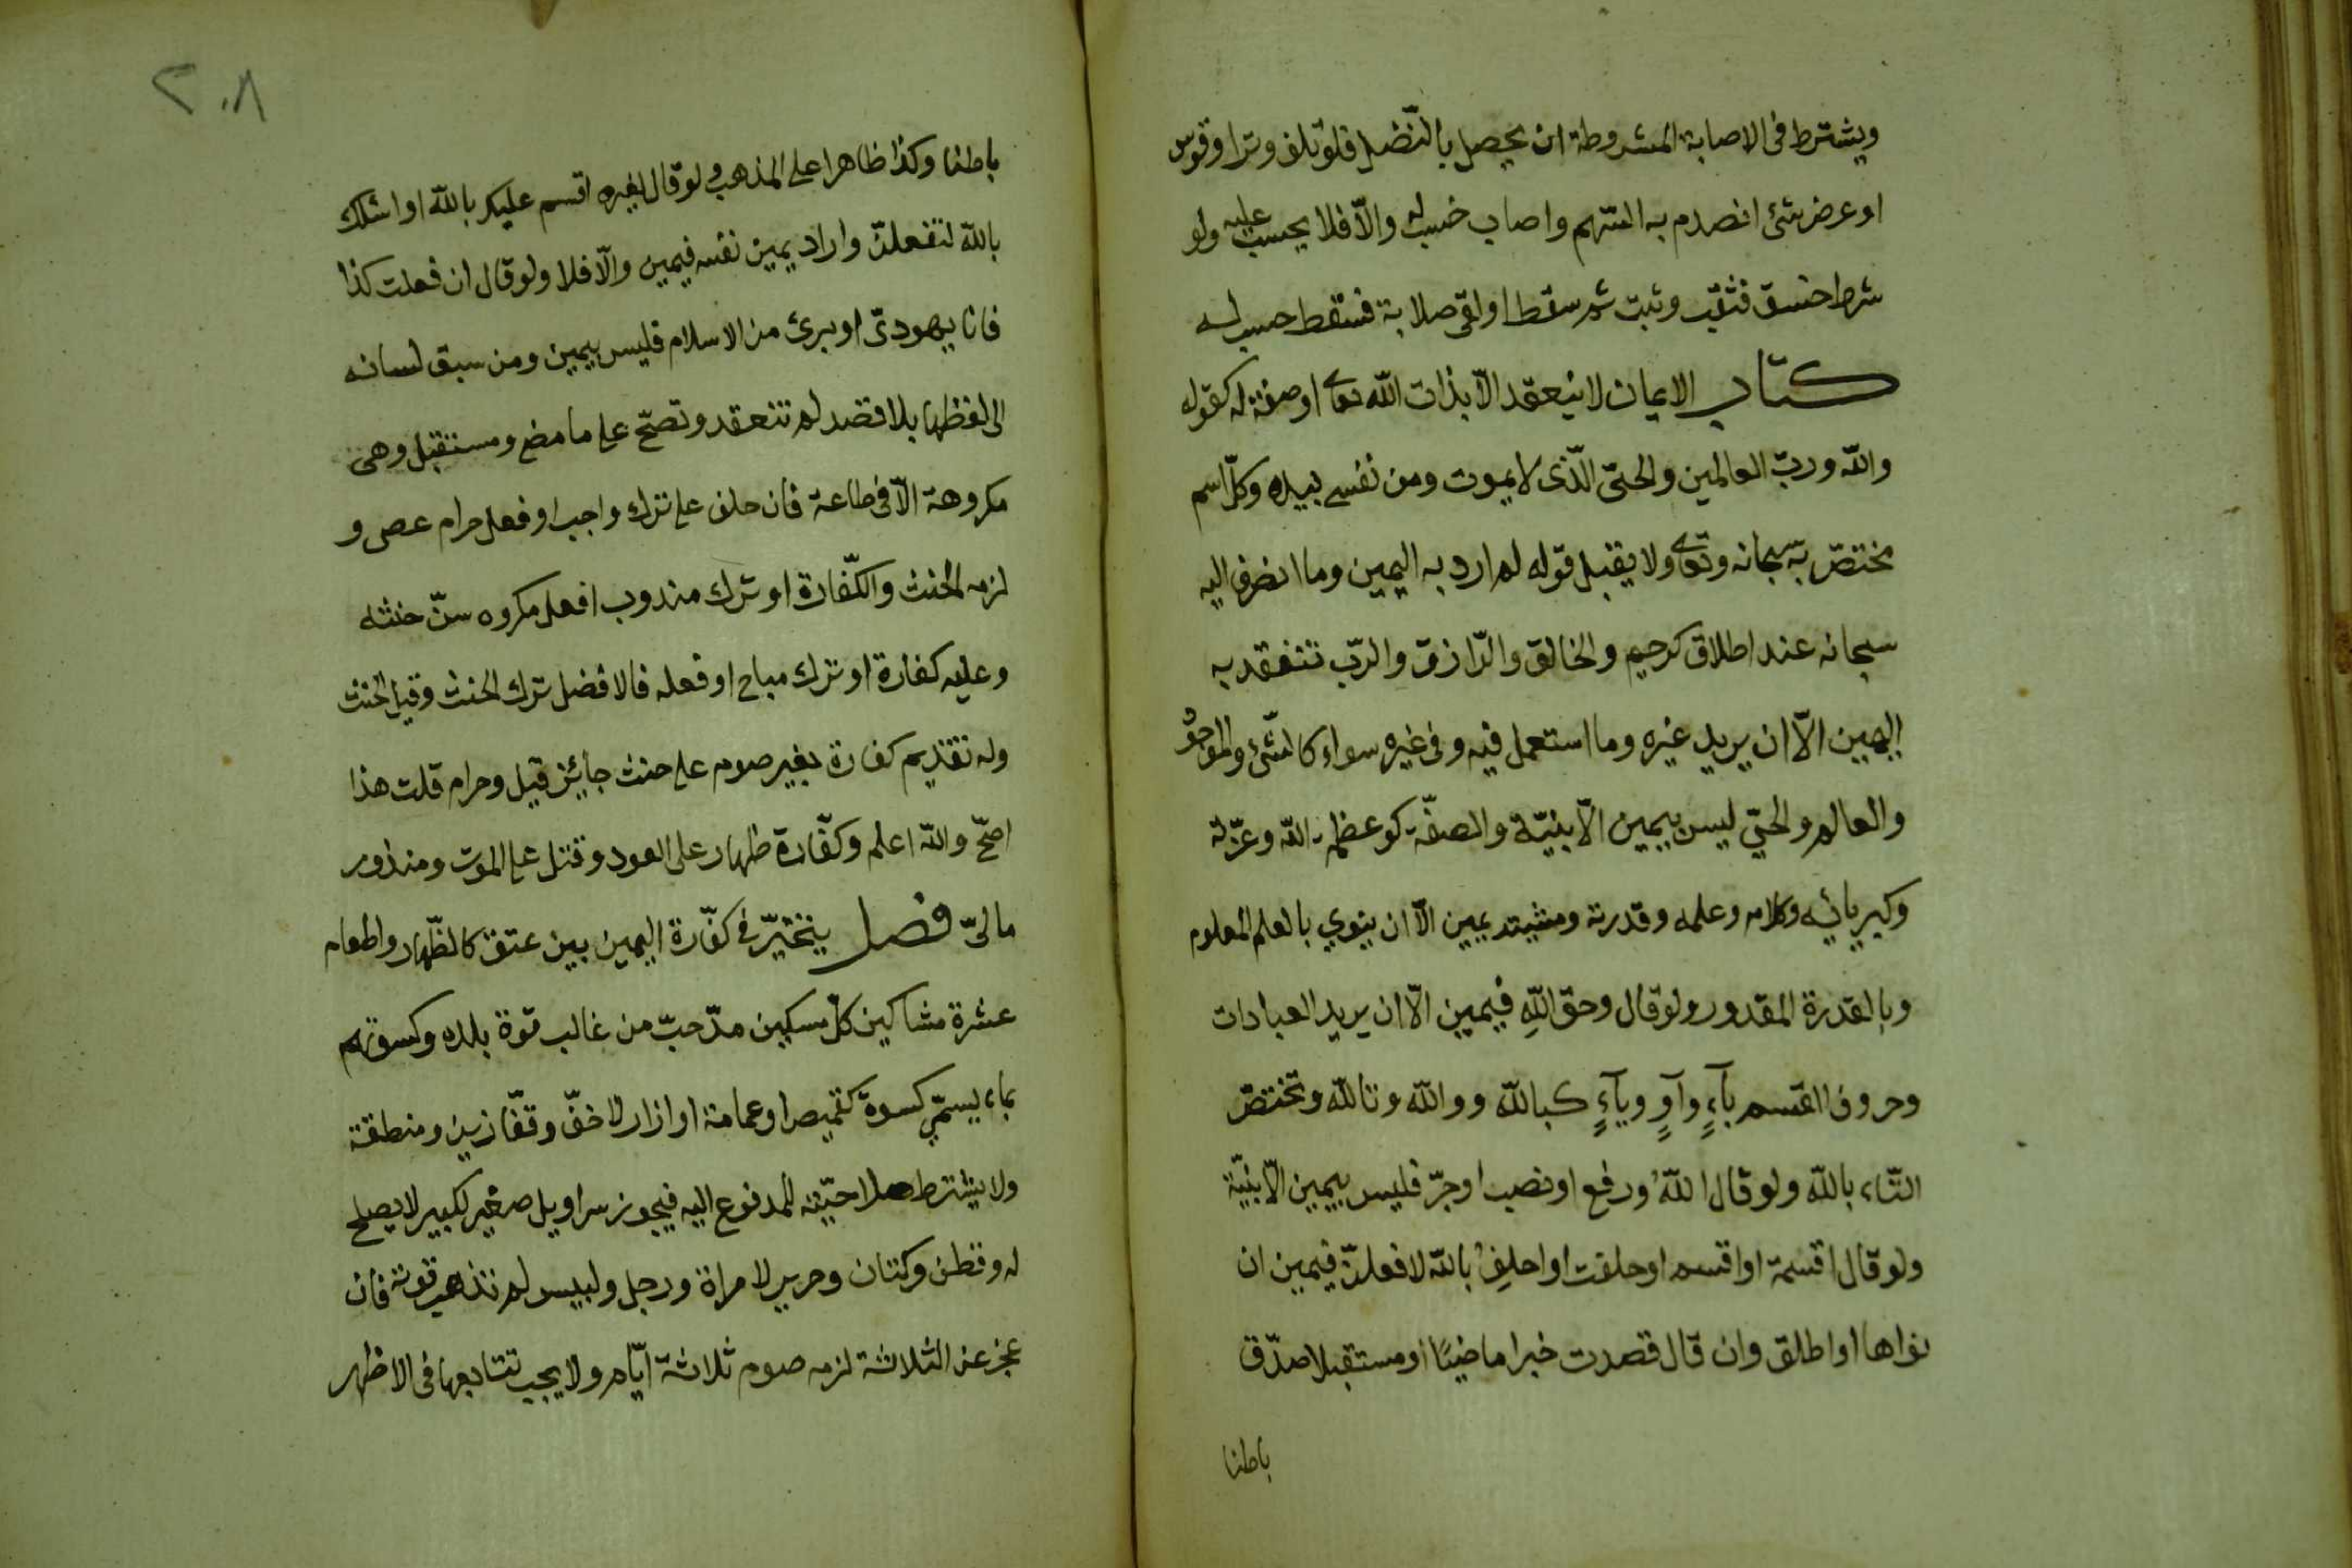 ويشترط فى الاصابة المشروطة ان يحصل بالنّضل فلو تلف وترا وقوس
او عرض شئ انصدم به السّهم واصاب حسب له والّا فلا يحسب عليه ولو
شرط خسق فثقب وثبت ثم سقط او لقى صلابة فسقط حسب له
كتاب الايمان لا ينعقد الّا بذات الله تعا اوصفة له كقوله
والله وربّ العالمين والحىّ الّذى لا يموت ومن نفسى بيده وكلّ اسم
مختصّ به سبحانه وتعا ولا يقبل قوله لم ارد به اليمين وما انصرف اليه
سبحانه عند اطلاق كرحيم والخالق والرّازق والربّ تنعقد به
اليمين الّا ان يريد غيره وما استعمل فيه وفى غيره سواء كالشّئ والموجود
والعالم والحيّ ليس بيمين الّا بنيّة والصفّة كوعظمة الله وعزّته
وكبريائه وكلامه وعلمه وقدرته ومشيته يمين الّا ان ينوي بالعلم المعلوم
وبالقدرة المقدور ولو قال وحقّ اللهِ فيمين الّا ان يريد العبادات
وحروف القسم بآءٍ وآوٍ ويآءٍ كبالله ووالله وتالله وتختصّ
التّاء بالله ولو قال اللهُ ورفع او نصب او جرّ فليس بيمين الّا بنيّة
ولو قال اقسمة او اقسم او حلفت او احلِفُ بالله لافعلنّ فيمين ان
نواها او اطلق وان قال قصدت خبرا ماضيًا او مستقبلا صدّق
باطنا
٢٠٨
باطنا وكذا ظاهرا على المذهب ولو قال لغيره اقسم عليك بالله او اسئلك
بالله لتفعلنّ واراد يمين نفسه فيمين والّا فلا ولو قال ان فعلت كذا
فانا يهودىّ او برئ من الاسلام فليس بيمين ومن سبق لسانه
الى لفظها بلا قصد لم تنعقد وتصحّ على ما مضى ومستقبل وهى
مكروهة الّا فى طاعة فان حلف على ترك واجب او فعل حرام عصى و
لزمه الحنث والكّفارة او ترك مندوب افعل مكروه سنّ حنثه
وعليه كفارة او ترك مباح او فعله فالافضل ترك الحنث وقيل الحنث
وله تقديم كفارة بغير صوم على حنث جايئز قيل وحرام قلت هذا
اصحّ والله اعلم وكفّارة ظهار على العود وقتل على الموت ومنذور
مالىّ فصل يتخيّر فى كفّارة اليمين بين عتق كالظّهار واطعام
عشرة مساكين كلّ مسكين مدّ حبّ من غالب قوة بلده وكسوتهم
بماء يسمّى كسوة كقميص او عمامة او ازار لا خفّ وقفّازين ومنطقة
ولا يشترط صلاحيّته للمدفوع اليه فيجوز سراويل صغير لكبير لا يصلح
له وقطن وكتان وحرير لامراة ورجل ولبيس لم تذهب قوته فان
عجز عن الثلاثة لزمه صوم ثلاثة ايّام ولا يجب تتابعها فى الاظهر